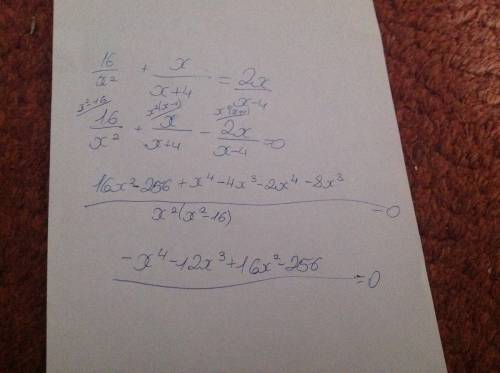 16/x² + x/(x+4) = 2x/(x-4)
16/x² + x/(x+4) - 2x/(x-4) = 0
(16x² - 256 + x⁴ - 4x³ - 2x⁴ - 8x³)/(x²(x² - 16)) = 0
(-x⁴ - 12x³ + 16x² - 256)/ = 0